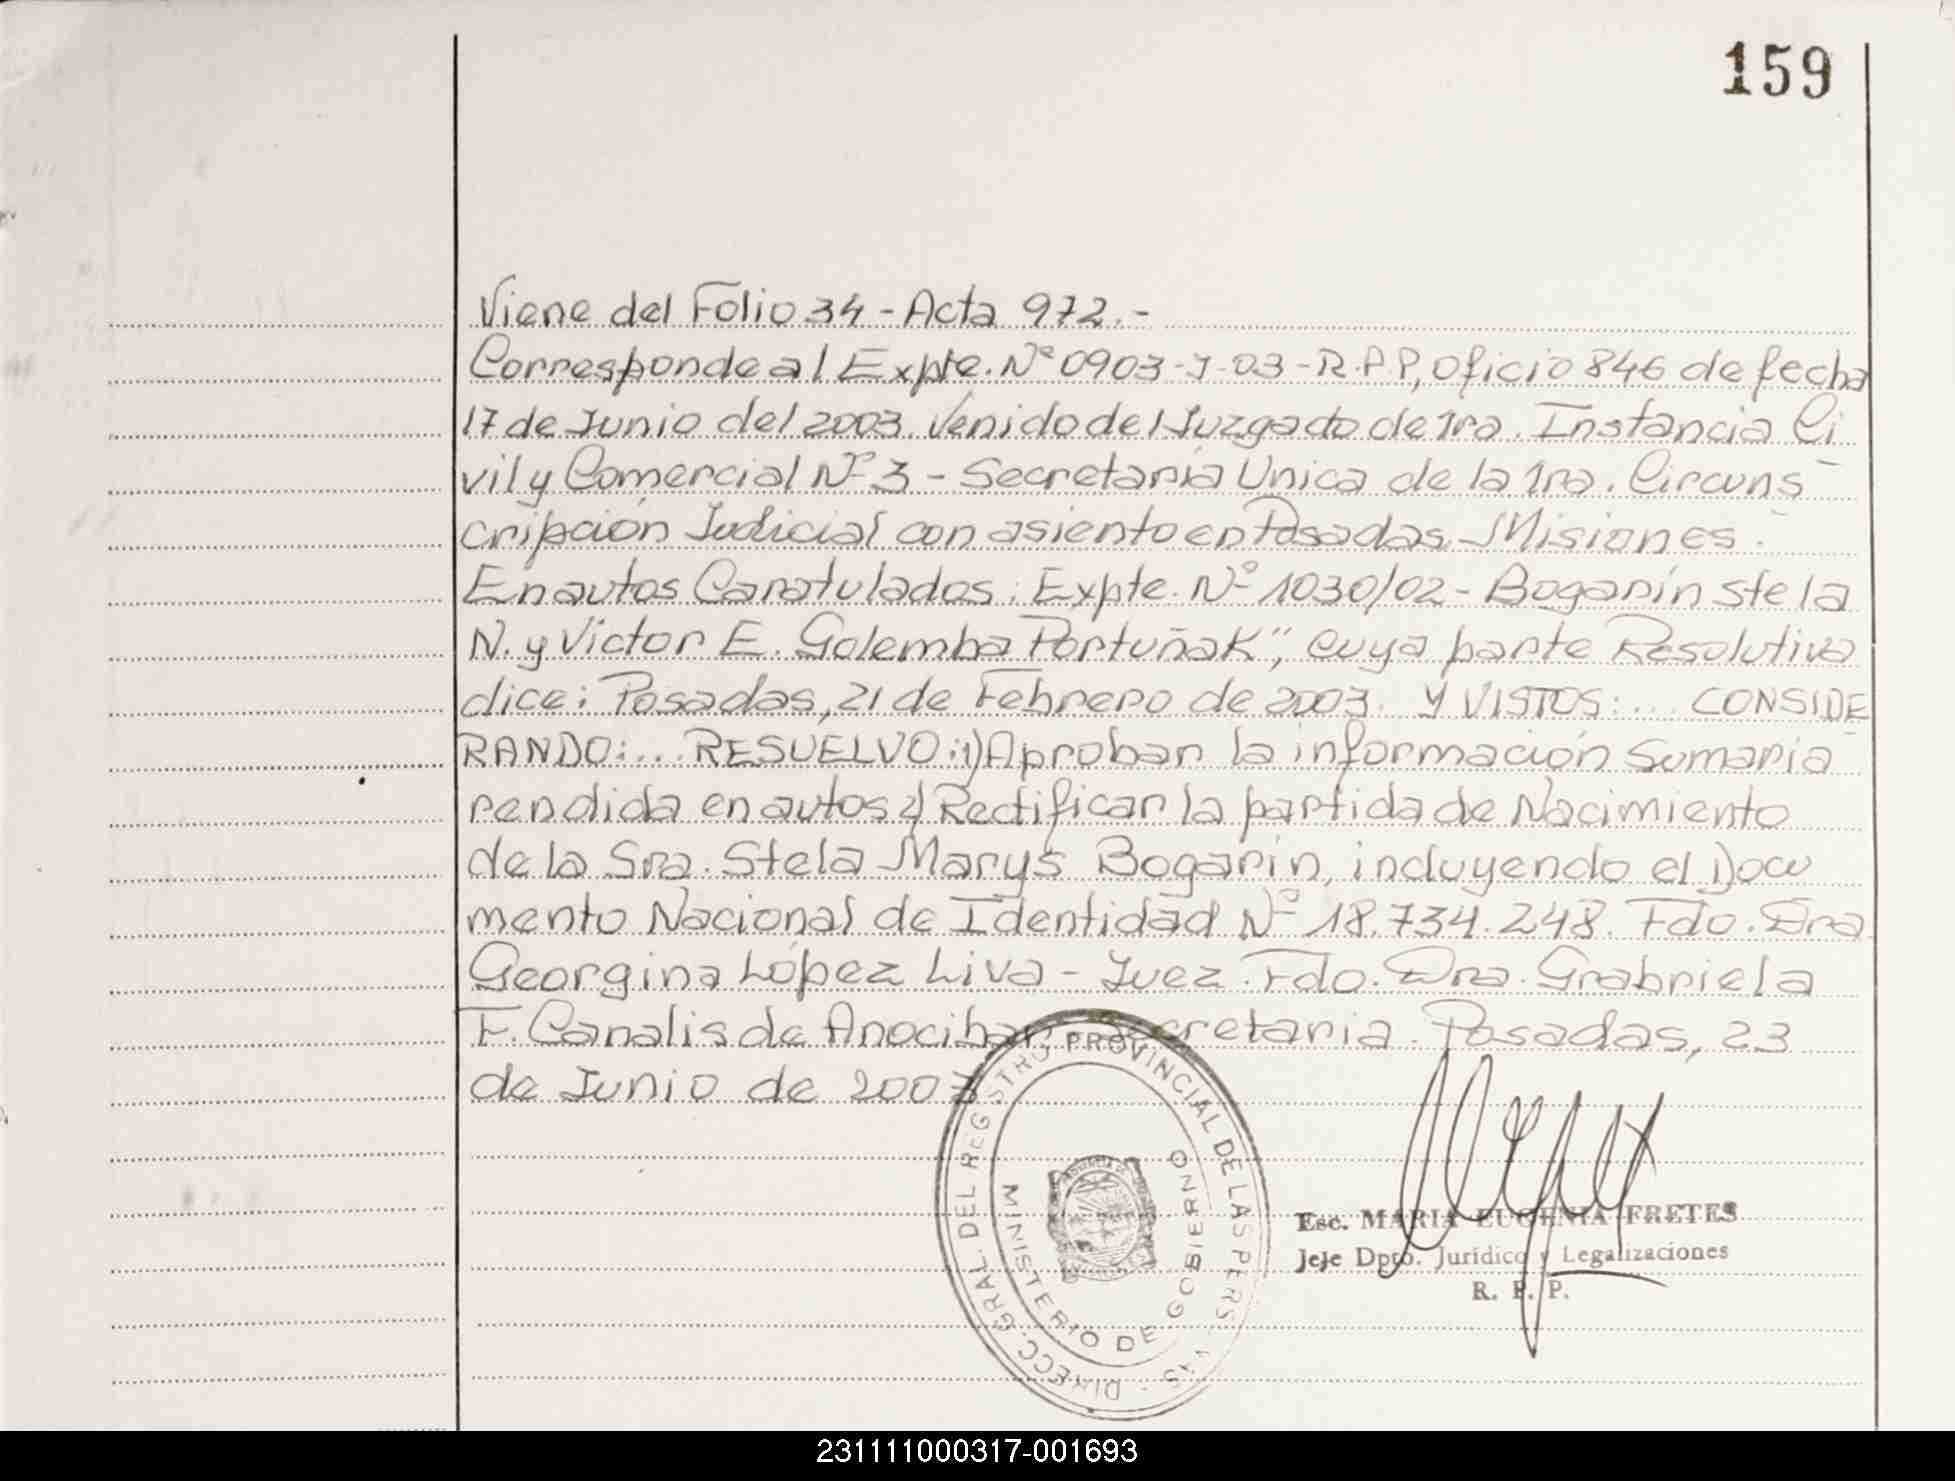 159
Viene del Folio 34 - Acta 972.-
Corresponde al Expte. Nº 0903-J-03-R.P.P, oficio 846 de fecha
17 de Junio del 2003. Venido del Juzgado de 1ra. Instancia Ci
vil y Comercial Nº 3 - Secretaría Unica de la 1ra. Circuns
cripción Judicial con asiento en Posadas, Misiones.
En autos Caratulados: Expte. Nº 1030/02 - Bogarín Stela
N. y Victor E. Golemba Portuñak", cuya parte Resolutiva
dice: Posadas, 21 de Febrero de 2003. Y VISTOS:... CONSIDE
RANDO:... RESUELVO: 1) Aprobar la información Sumaria
rendida en autos 2) Rectificar la partida de Nacimiento
de la Sra. Stela Marys Bogarín, incluyendo el Docu
mento Nacional de Identidad Nº 18.734.248. Fdo. Dra
Georgina López Liva - Juez. Fdo. Dra. Grabriela
F. Canalis de Anocibar, Secretaria. Posadas, 23
de Junio de 2003
DIRECC. GRAL. DEL REGISTRO PROVINCIAL DE LAS PERS
MINISTERIO DE GOBIERNO
Esc. MARIA EUGENIA FRETES
Jefe Dpto. Jurídico y Legalizaciones
R. P. P.
231111000317-001693